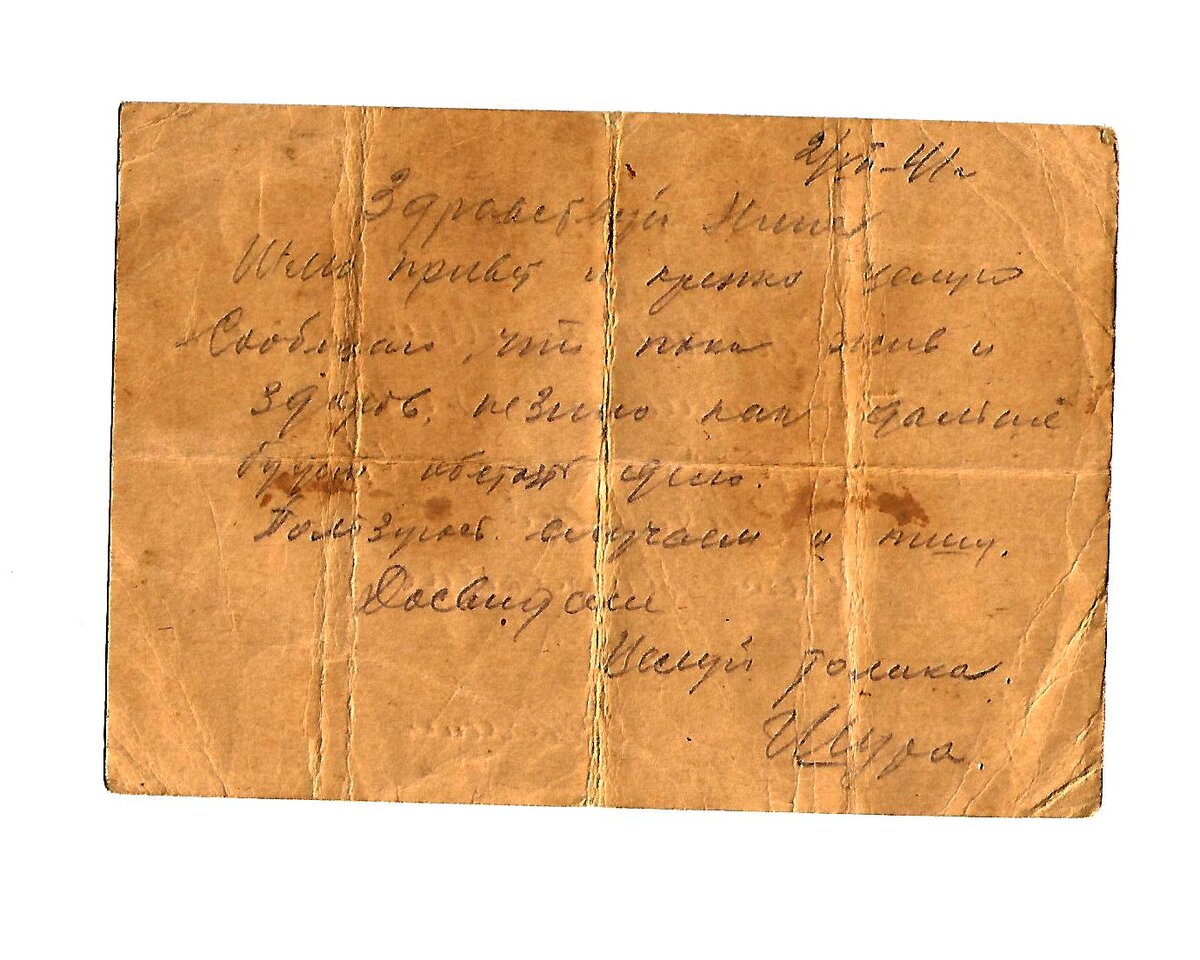 2/XII-41г
Здравствуй Нина
Шлю привет и крепко целую
Сообщаю, что пока жив и
здоров. незнаю как дальше
будет обстоять дело.
Пользуюсь случаем и пишу.
Досвидани
Целуй Толика.
Шура.